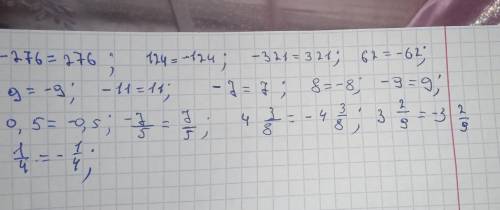 -276 = 276 ; 124 = -124 ; -321 = 321 ; 62 = -62 ;
9 = -9 ; -11 = 11 ; -7 = 7 ; 8 = -8 ; -9 = 9 ;
0,5 = -0,5 ; -7/5 = 7/5 ; 4 3/8 = -4 3/8 ; 3 2/9 = -3 2/9
1/4 = -1/4 ;